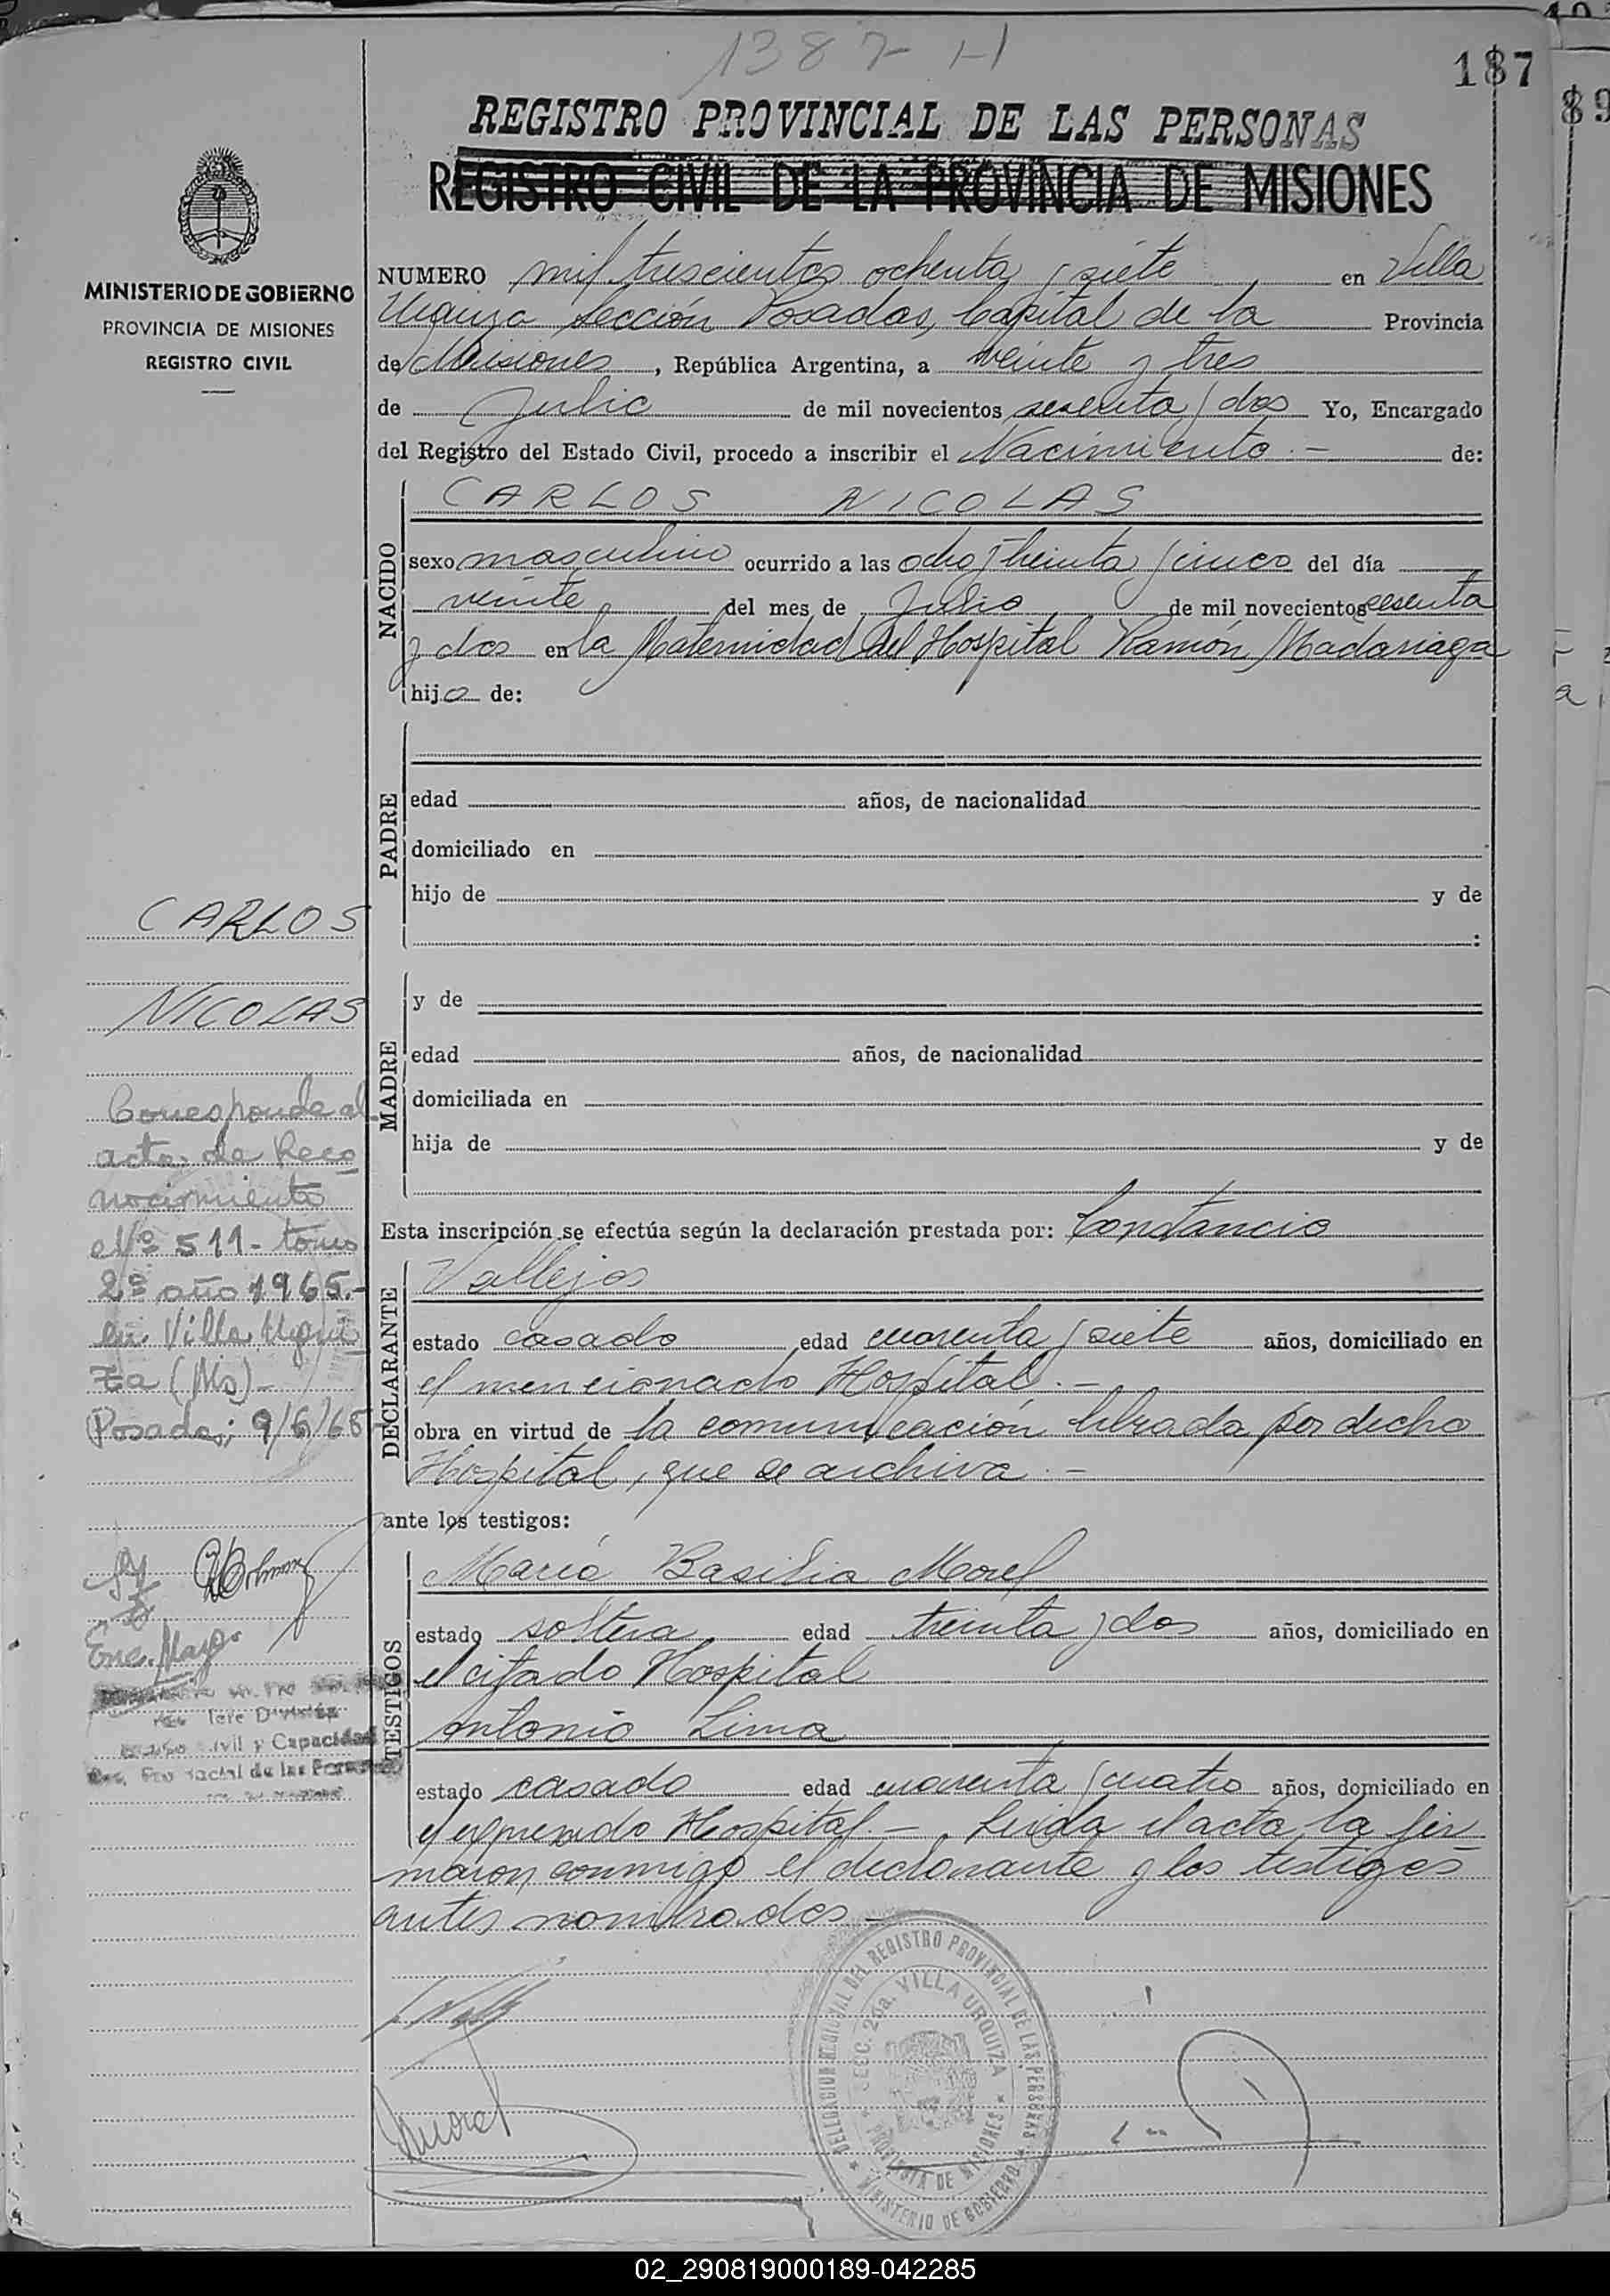 1387-H
187
REGISTRO PROVINCIAL DE LAS PERSONAS
REGISTRO CIVIL DE LA PROVINCIA DE MISIONES
MINISTERIO DE GOBIERNO
PROVINCIA DE MISIONES
REGISTRO CIVIL
NUMERO mil trescientos ochenta y siete en Villa
Urquiza Sección Posadas, Capital de la Provincia
de Misiones, República Argentina, a veinte y tres
de Julio de mil novecientos sesenta y dos Yo, Encargado
del Registro del Estado Civil, procedo a inscribir el Nacimiento.- de:
NACIDO
CARLOS NICOLAS
sexo masculino ocurrido a las ocho y treinta y cinco del día
veinte del mes de Julio de mil novecientos sesenta
y dos en la Maternidad del Hospital Ramón Madariaga
hijo de:
PADRE
edad años, de nacionalidad
domiciliado en
hijo de y de
:
MADRE
y de
edad años, de nacionalidad
domiciliada en
hija de y de
Esta inscripción se efectúa según la declaración prestada por: Constancio
DECLARANTE
Vallejos
estado casado edad cuarenta y siete años, domiciliado en
el mencionado Hospital.-
obra en virtud de la comunicación librada por dicho
Hospital, que se archiva.-
ante los testigos:
TESTIGOS
María Basilia Morel
estado soltera edad treinta y dos años, domiciliado en
el citado Hospital
Antonio Lima
estado casado edad cuarenta y cuatro años, domiciliado en
el expresado Hospital.- Leida el acta, la fir
maron conmigo el declarante y los testigos
antes nombrados-
CARLOS
NICOLAS
Corresponde al
acta de Reco
nocimiento
Nº 511- tomo
2º año 1965.-
en Villa Urqui
za (Ms)-
Posadas; 9/6/65
Enc. Mayo.
Jefe División
Civil y Capacidad
Reg. Provincial de las Personas
Morel
DELEGACION REGIONAL DEL REGISTRO PROVINCIAL DE LAS PERSONAS
SECC. 2da. VILLA URQUIZA
PROVINCIA DE MISIONES
MINISTERIO DE GOBIERNO
02_290819000189-042285